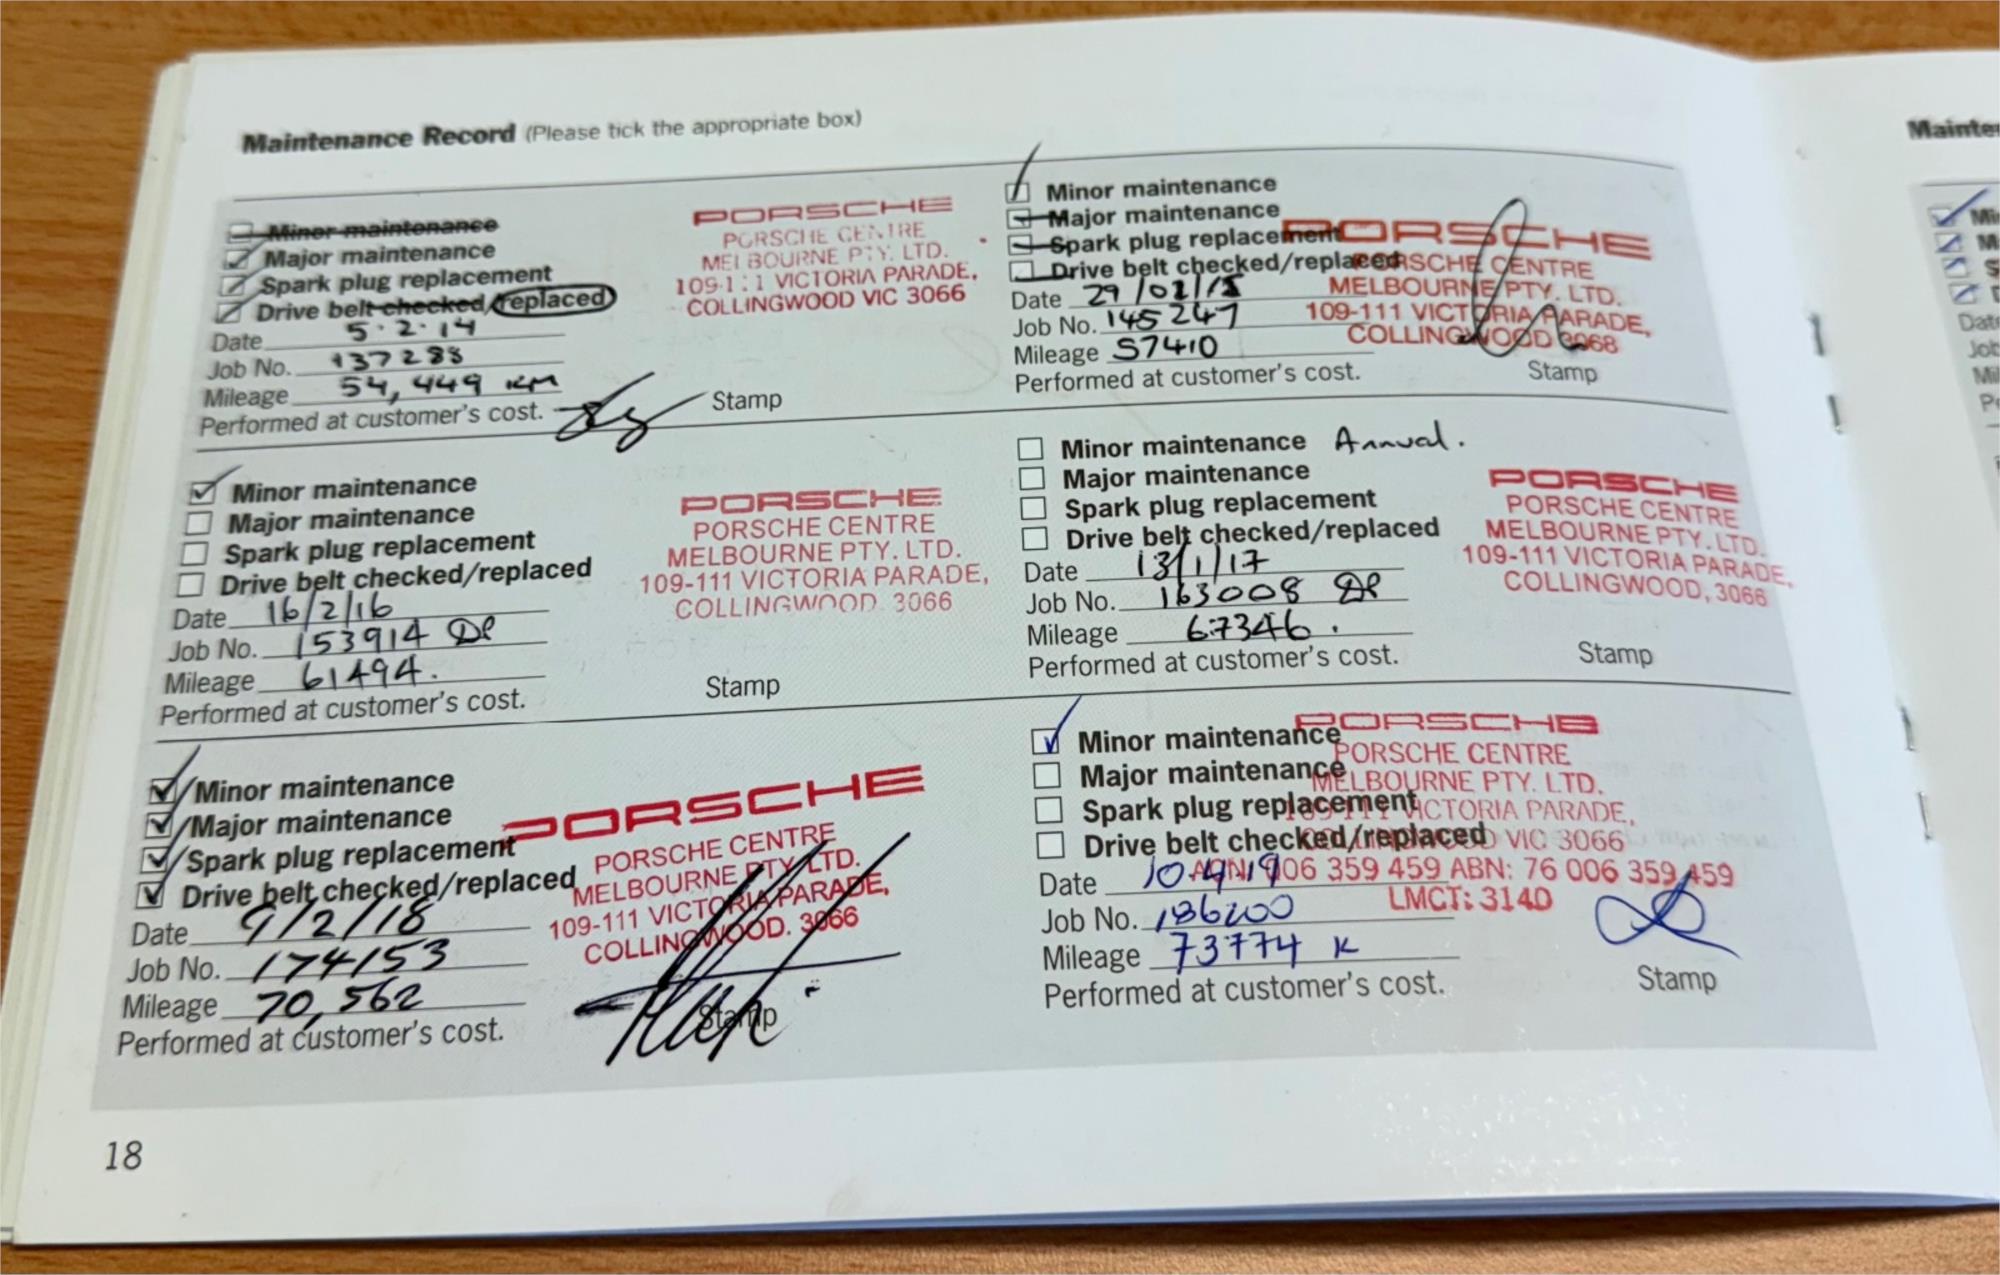 Maintenance Record (Please tick the appropriate box)
Minor maintenance
Major maintenance
Spark plug replacement
Drive belt checked/replaced
Date 5.2.14
Job No. 137288
Mileage 54,449 KM
Performed at customer's cost.
PORSCHE
PORSCHE CENTRE
MELBOURNE PTY. LTD.
109-111 VICTORIA PARADE,
COLLINGWOOD VIC 3066
Stamp
Minor maintenance
Major maintenance
Spark plug replacement
Drive belt checked/replaced
Date
Job No. 145247
Mileage 57410
Performed at customer's cost.
PORSCHE
PORSCHE CENTRE
MELBOURNE PTY. LTD.
109-111 VICTORIA PARADE,
COLLINGWOOD 3068
Stamp
Minor maintenance
Major maintenance
Spark plug replacement
Drive belt checked/replaced
Date 16/2/16
Job No. 153914 DP
Mileage 61494.
Performed at customer's cost.
PORSCHE
PORSCHE CENTRE
MELBOURNE PTY. LTD.
109-111 VICTORIA PARADE,
COLLINGWOOD. 3066
Stamp
Minor maintenance Annual.
Major maintenance
Spark plug replacement
Drive belt checked/replaced
Date 13/1/17
Job No. 163008 DP
Mileage 67346.
Performed at customer's cost.
PORSCHE
PORSCHE CENTRE
MELBOURNE PTY. LTD.
109-111 VICTORIA PARADE,
COLLINGWOOD, 3066
Stamp
Minor maintenance
Major maintenance
Spark plug replacement
Drive belt checked/replaced
Date 9/2/18
Job No. 174153
Mileage 70,562
Performed at customer's cost.
PORSCHE
PORSCHE CENTRE
MELBOURNE PTY. LTD.
109-111 VICTORIA PARADE,
COLLINGWOOD. 3066
Stamp
Minor maintenance
Major maintenance
Spark plug replacement
Drive belt checked/replaced
Date 10.4.19
Job No. 186200
Mileage 73774 K
Performed at customer's cost.
PORSCHE
PORSCHE CENTRE
MELBOURNE PTY. LTD.
109-111 VICTORIA PARADE,
COLLINGWOOD VIC 3066
ACN: 006 359 459 ABN: 76 006 359 459
LMCT: 3140
Stamp
18
Mainte
Mi
M
S
Dat
Job
Mi